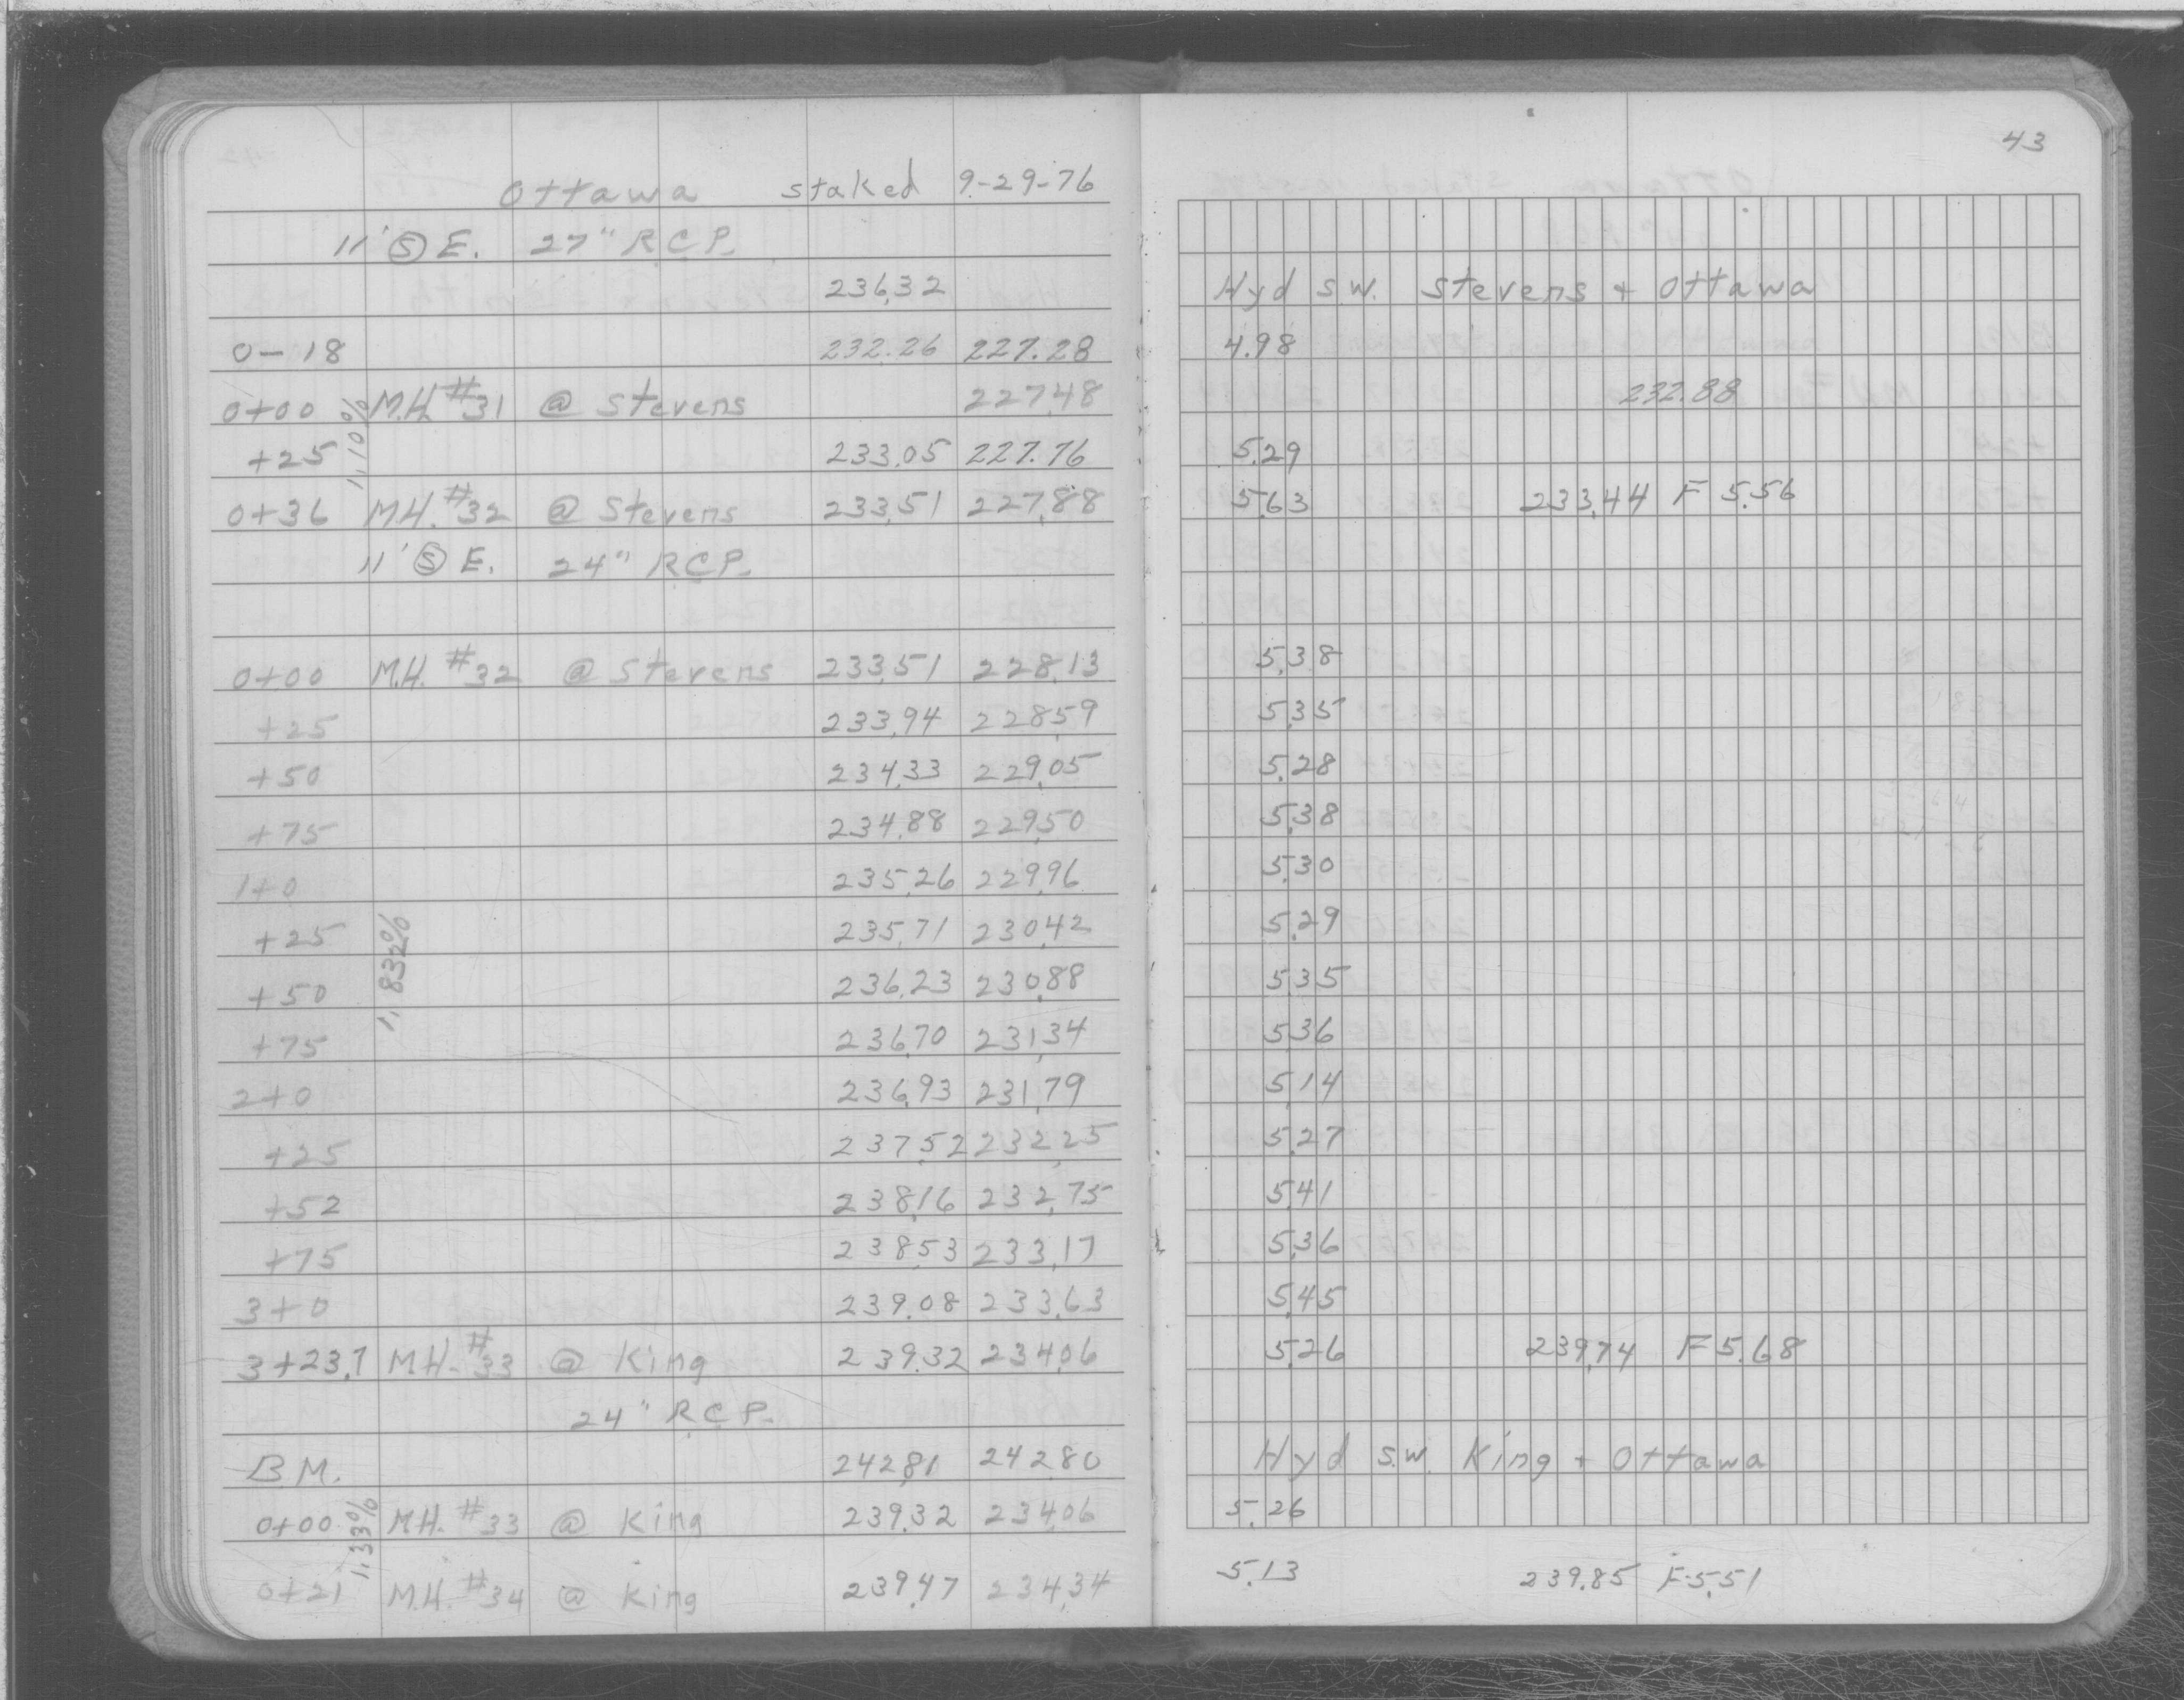 43
Ottawa staked 9-29-76
11' Ⓢ E. 27" R.C.P.
236.32 Hyd S.W. Stevens + Ottawa
0-18 232.26 227.28 4.98
0+00 M.H. #31 @ Stevens 227.48 232.88
1.10%
+25 233.05 227.76 5.29
0+36 M.H. #32 @ Stevens 233.51 227.88 5.63 233.44 F 5.56
11' Ⓢ E. 24" R.C.P.
0+00 M.H. #32 @ Stevens 233.51 228.13 5.38
+25 233.94 228.59 5.35
+50 234.33 229.05 5.28
+75 234.88 229.50 5.38
1+0 235.26 229.96 5.30
+25 235.71 230.42 5.29
1.832%
+50 236.23 230.88 5.35
+75 236.70 231.34 5.36
2+0 236.93 231.79 5.14
+25 237.52 232.25 5.27
+52 238.16 232.75 5.41
+75 238.53 233.17 5.36
3+0 239.08 233.63 5.45
3+23.7 M.H. #33 @ King 239.32 234.06 5.26 239.74 F 5.68
24" R.C.P.
B.M. 242.81 242.80 Hyd S.W. King + Ottawa
0+00 M.H. #33 @ King 239.32 234.06 5.26
1.33%
0+21 M.H. #34 @ King 239.47 234.34 5.13 239.85 F 5.51